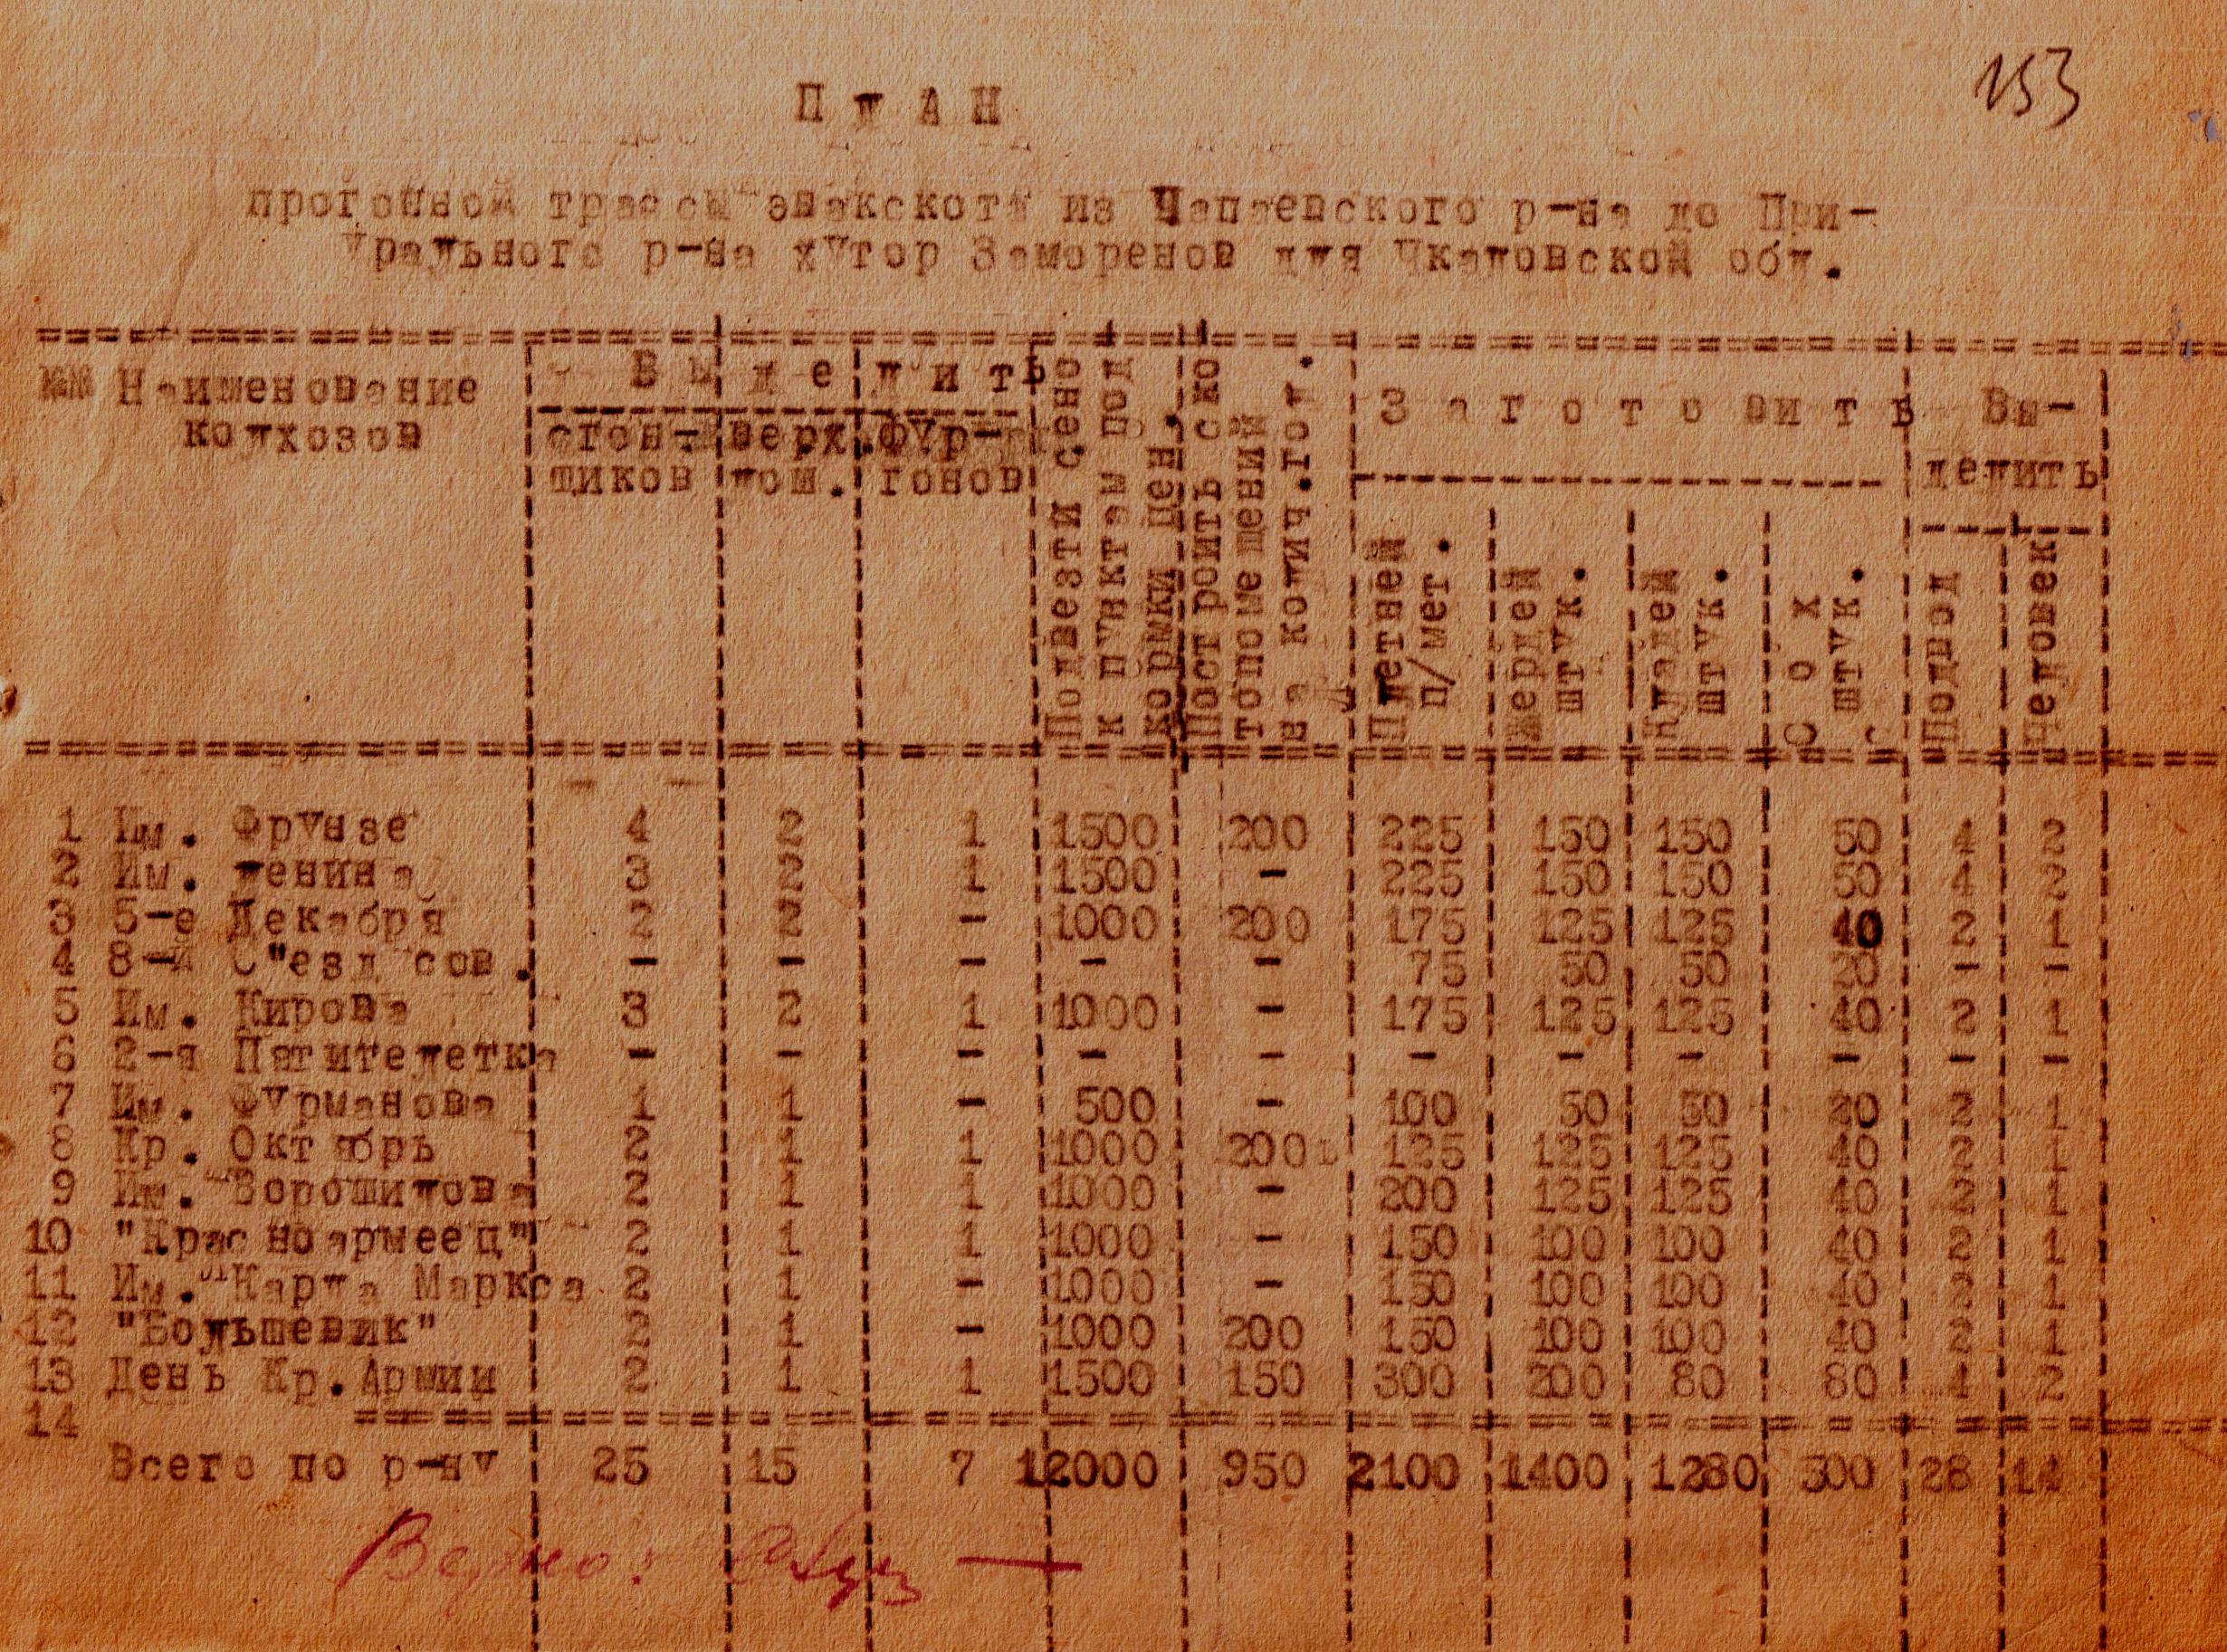 153
ПлАН
прогонной трассы эвакскота из Чапаевского р-на до При-
урального р-на хутор Заморенов для Чкаловской обл.
№№ Наименование колхозов
Выделить
сгон-щиков
верх. лош.
фур-гонов
Подвезти сено к пунктам под кормки цен.
Построить скотопомещений на колич. гол.
Заготовить
Плетней п/мет.
Жердей штук.
Кладей штук.
Сох штук.
Вы-делить
Подвод
Человек
1 Им. Фрунзе 4 2 1 1500 200 225 150 150 50 4 2
2 Им. Ленина 3 2 1 1500 - 225 150 150 50 4 2
3 5-е Декабря 2 2 - 1000 200 175 125 125 40 2 1
4 8-й С"езд сов. - - - - - 75 50 50 20 - -
5 Им. Кирова 3 2 1 1000 - 175 125 125 40 2 1
6 2-я Пятителетка - - - - - - - - - - -
7 Им. Фурманова 1 1 - 500 - 100 50 50 20 2 1
8 Кр. Октябрь 2 1 1 1000 200 125 125 125 40 2 1
9 Им. Ворошилова 2 1 1 1000 - 200 125 125 40 2 1
10 "Красноармеец" 2 1 1 1000 - 150 100 100 40 2 1
11 Им. Карла Маркса 2 1 - 1000 - 150 100 100 40 2 1
12 "Большевик" 2 1 - 1000 200 150 100 100 40 2 1
13 День Кр. Армии 2 1 1 1500 150 300 200 80 80 4 2
14
Всего по р-ну 25 15 7 12000 950 2100 1400 1280 500 28 14
Верно: